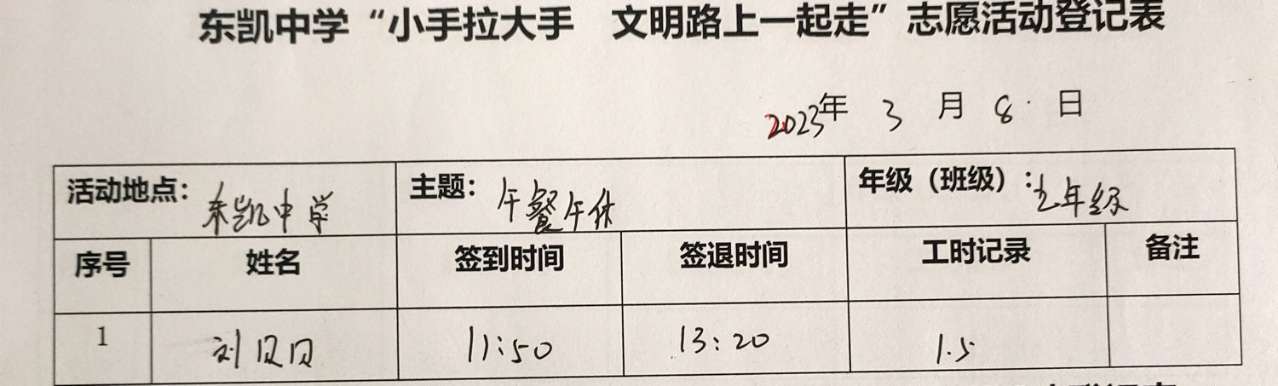 东凯中学“小手拉大手 文明路上一起走”志愿活动登记表
2023年 3 月 8 日
活动地点：东凯中学 主题：午餐午休 年级（班级）：七年级
序号 姓名 签到时间 签退时间 工时记录 备注
1 刘 11:50 13:20 1.5